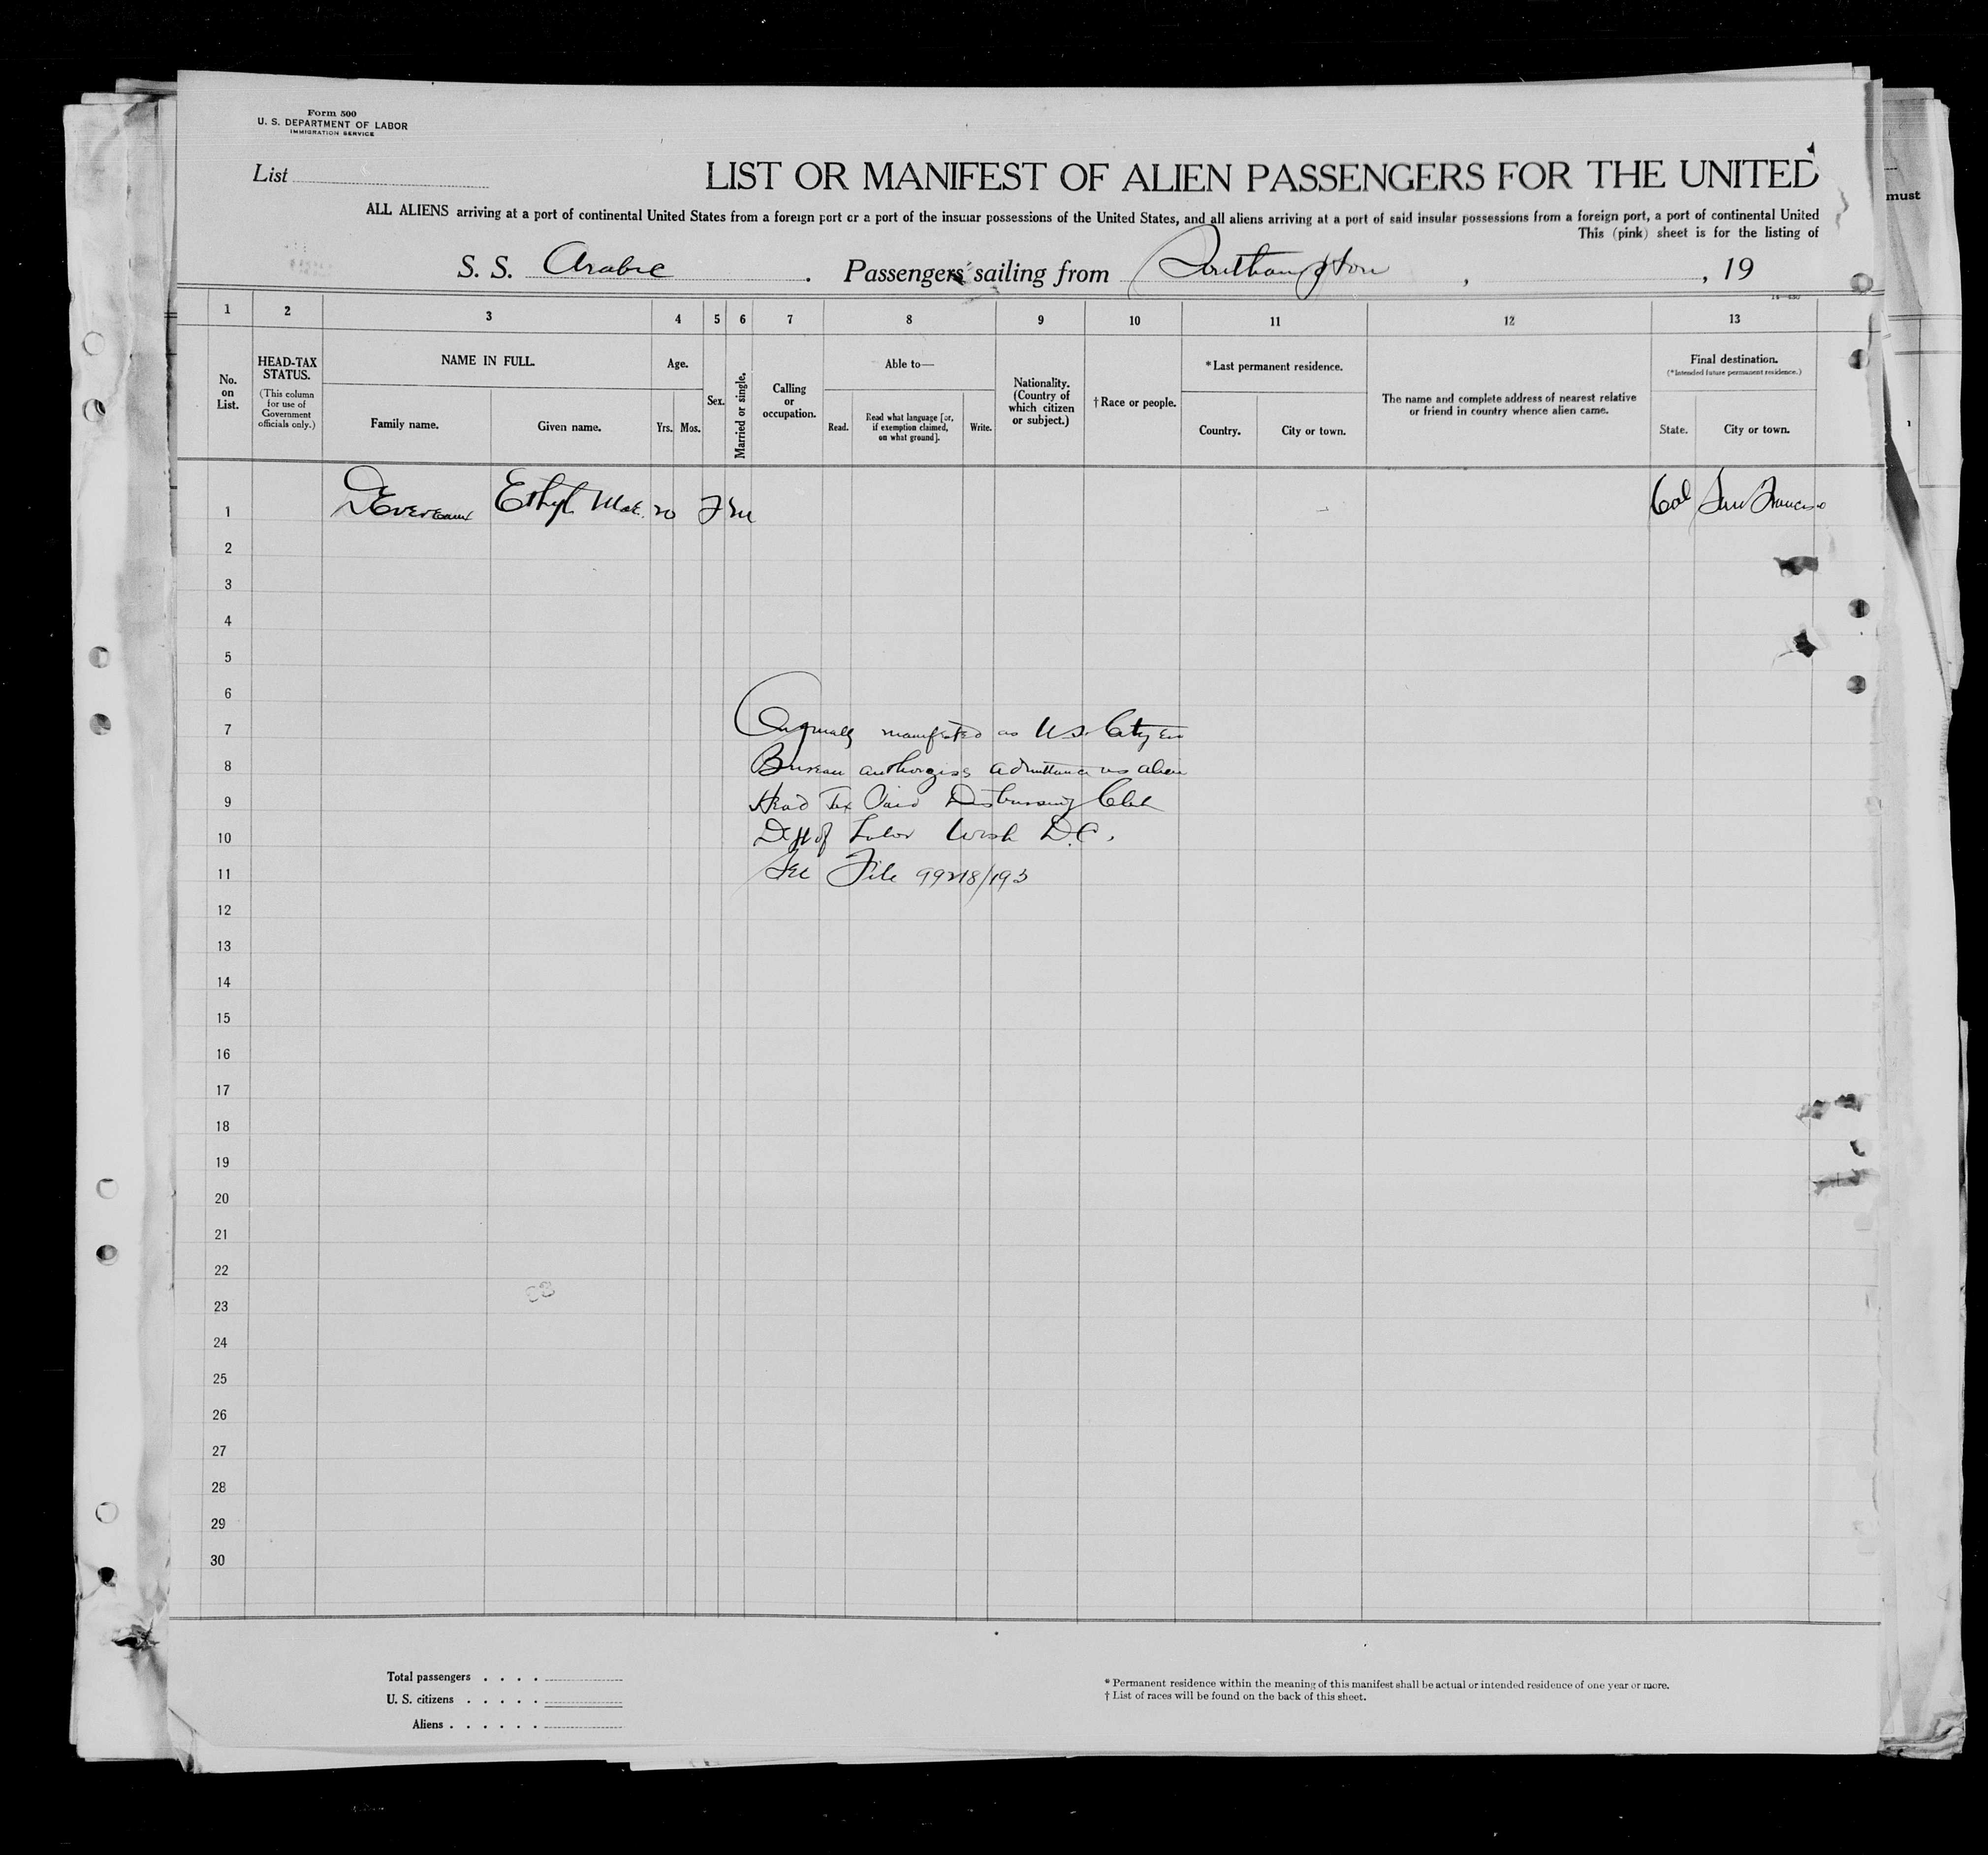 Form 500
U. S. DEPARTMENT OF LABOR
IMMIGRATION SERVICE
List
LIST OR MANIFEST OF ALIEN PASSENGERS FOR THE UNITED
ALL ALIENS arriving at a port of continental United States from a foreign port or a port of the insular possessions of the United States, and all aliens arriving at a port of said insular possessions from a foreign port, a port of continental United
This (pink) sheet is for the listing of
must
S. S. Arabic . Passengers sailing from Southampton , , 19
1 2 3 4 5 6 7 8 9 10 11 12 13
No. on List.
HEAD-TAX STATUS.
(This column for use of Government officials only.)
NAME IN FULL.
Family name.
Given name.
Age.
Yrs. Mos.
Sex.
Married or single.
Calling or occupation.
Able to—
Read.
Read what language [or, if exemption claimed, on what ground].
Write.
Nationality. (Country of which citizen or subject.)
†Race or people.
*Last permanent residence.
Country.
City or town.
The name and complete address of nearest relative or friend in country whence alien came.
Final destination.
(*Intended future permanent residence.)
State.
City or town.
1 DEvereaux Ethyl Mae 20 F M Cal San Francisco
2
3
4
5
6
7 Originally manifested as U.S. Citizen
8 Bureau authorizes admittance as alien
9 Head Tax Paid Disbursing Clerk
10 Dept of Labor Wash D.C.
11 See File 99218/193
12
13
14
15
16
17
18
19
20
21
22
23
24
25
26
27
28
29
30
Total passengers . . . .
U. S. citizens . . . . .
Aliens . . . . . .
* Permanent residence within the meaning of this manifest shall be actual or intended residence of one year or more.
† List of races will be found on the back of this sheet.